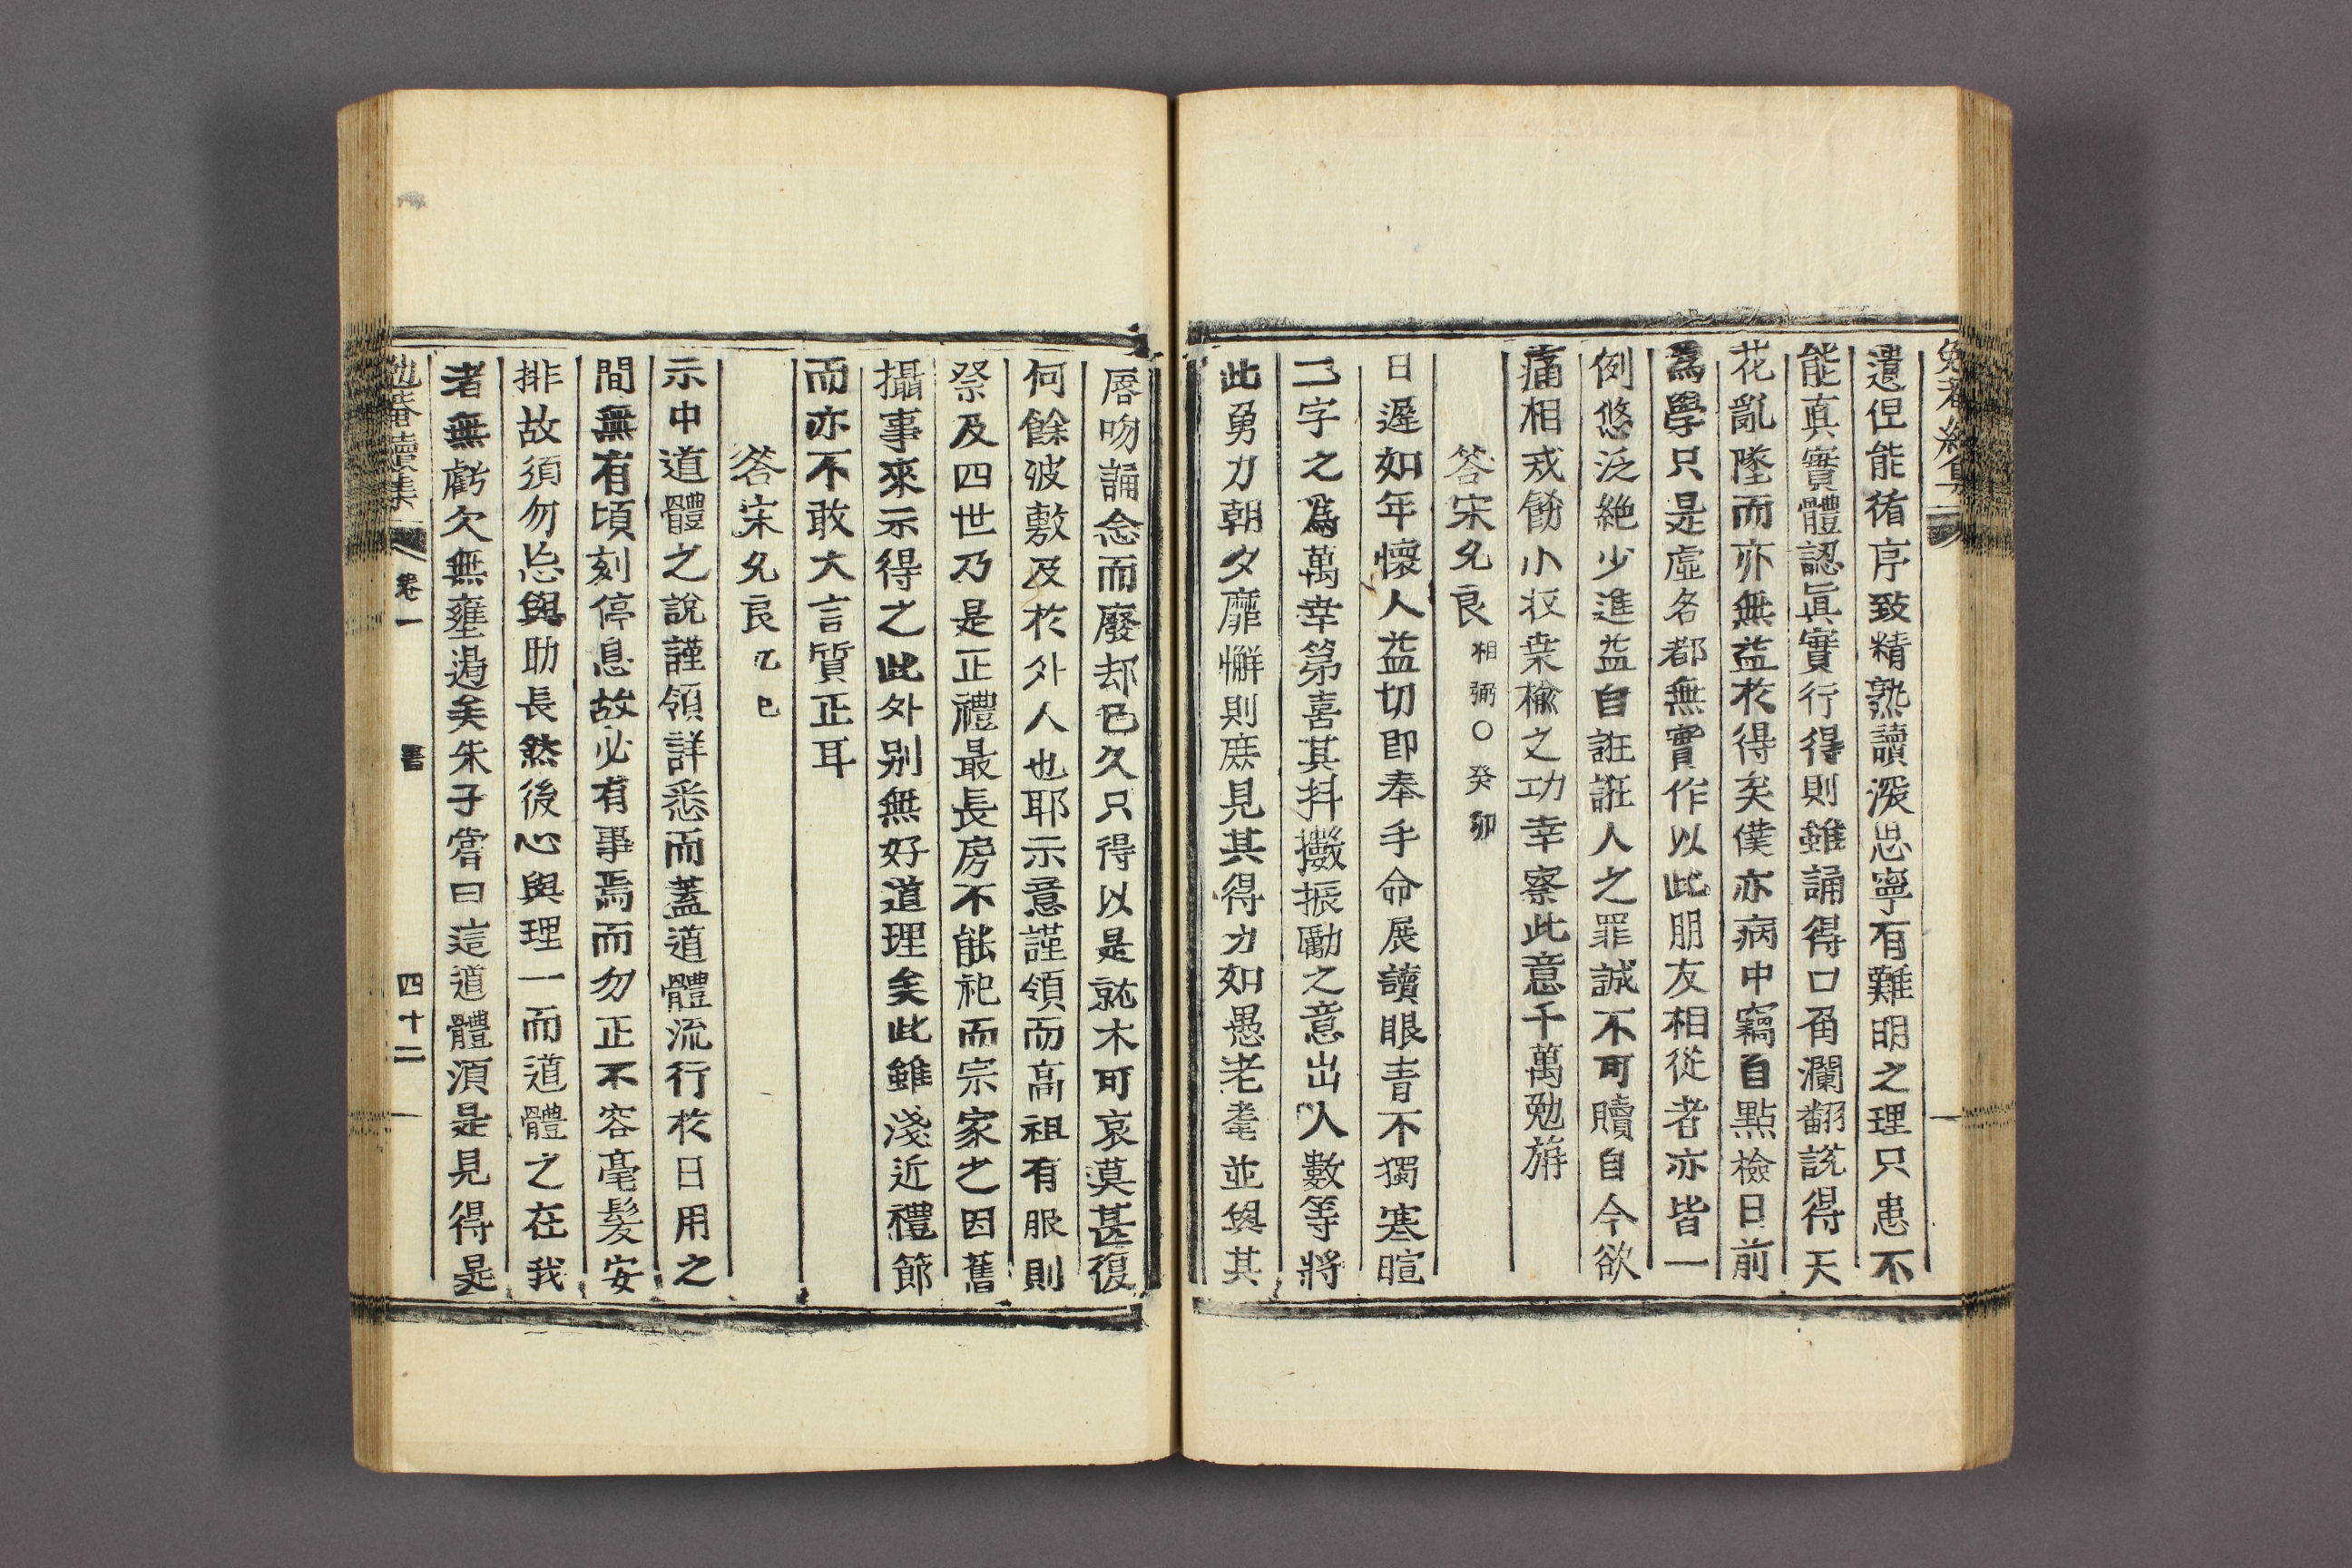 遺但能循序致精熟讀深思寧有難明之理只患不
能真實體認眞實行得則雖誦得口角瀾翻説得天
花亂墜而亦無益於得矣僕亦病中竊自點檢日前
爲學只是虛名都無實作以此朋友相從者亦皆一
例悠泛絶少進益自誑誑人之罪誠不可贖自今欲
痛相戒飭小收桒楡之功幸察此意千萬勉旃
答宋允良 相弼○癸卯
日遲如年懷人益切即奉手命展讀眼青不獨寒暄
二字之爲萬幸第喜其抖擻振勵之意出人數等將
此勇力朝夕靡懈則庶見其得力如愚老耄並與其
唇吻誦念而廢却已久只得以是就木可哀莫甚復
何餘波敷及於外人也耶示意謹領而高祖有服則
祭及四世乃是正禮最長房不能祀而宗家之因舊
攝事來示得之此外别無好道理矣此雖淺近禮節
而亦不敢大言質正耳
答宋允良 乙巳
示中道體之說謹領詳悉而蓋道體流行於日用之
間無有頃刻停息故必有事焉而勿正不容毫髮安
排故須勿忘與助長然後心與理一而道體之在我
者無虧欠無壅遏矣朱子嘗曰這道體須是見得是
勉菴續集 卷一 書 四十二